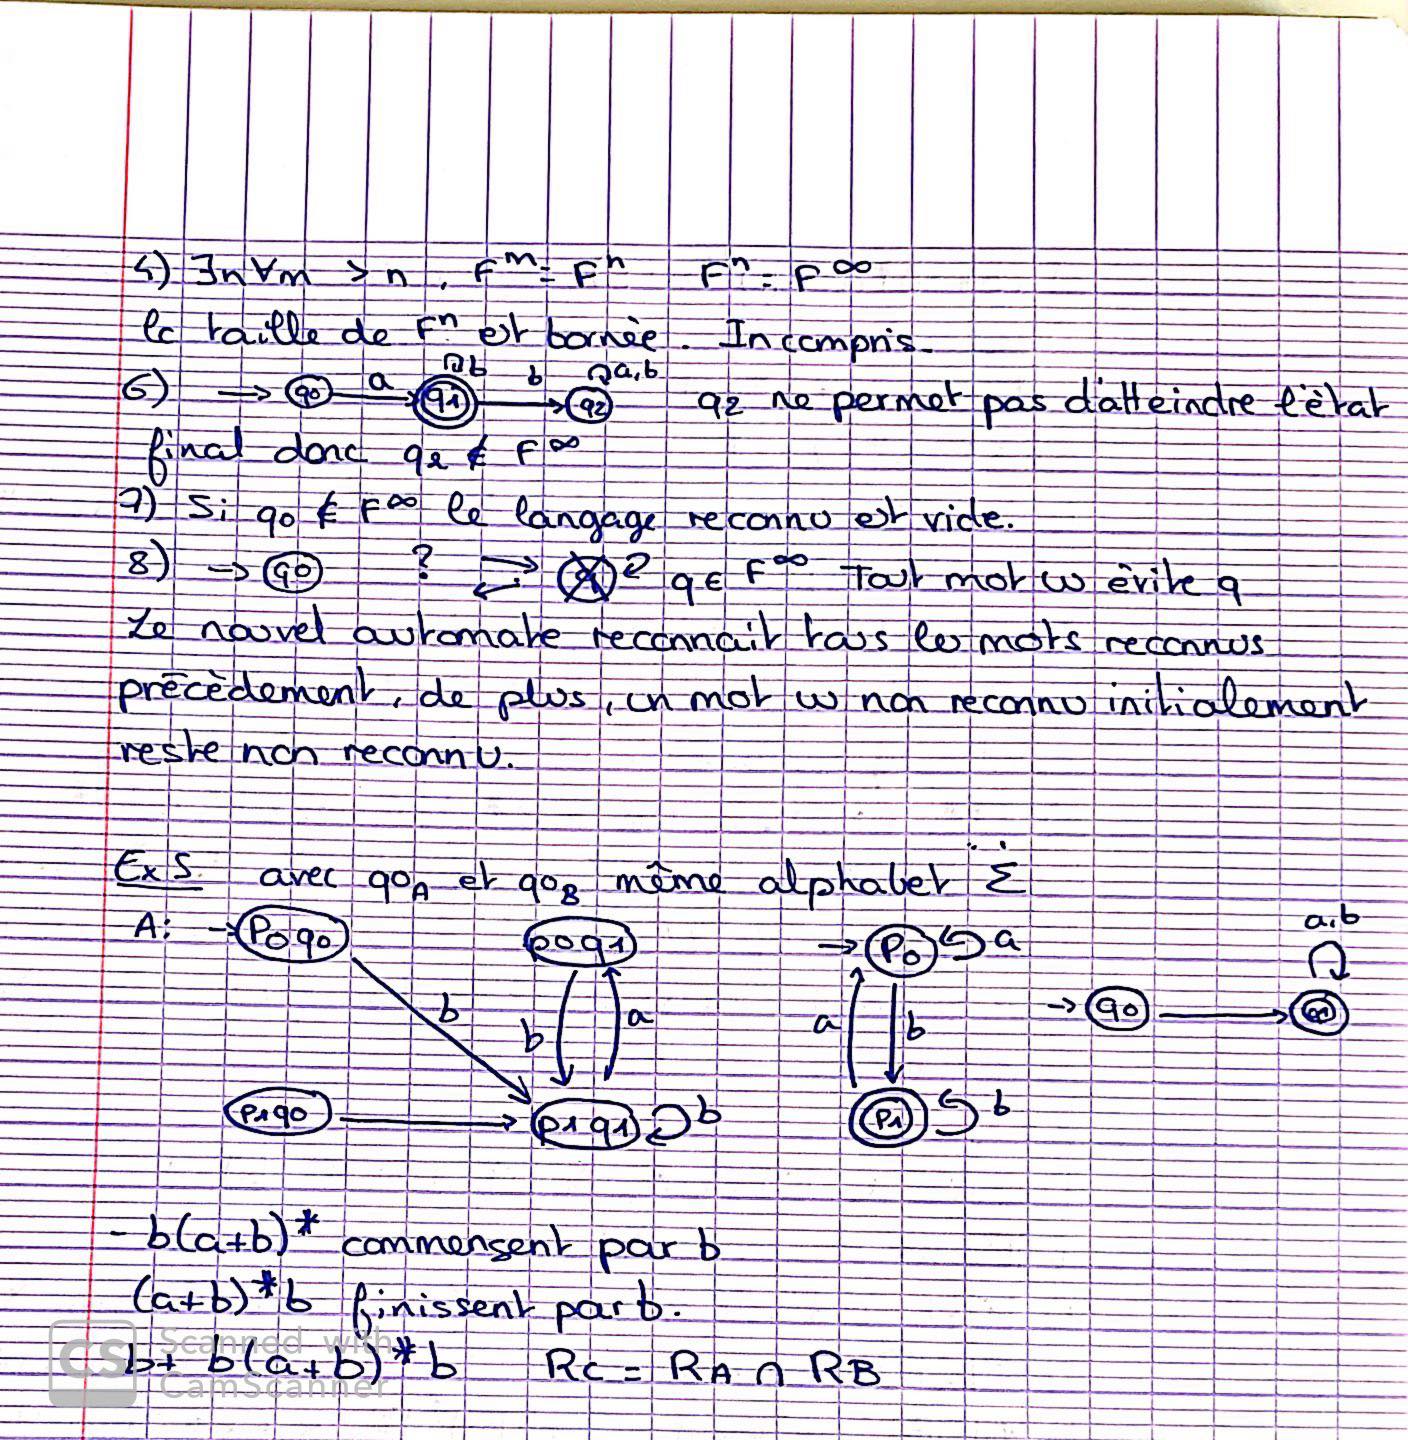 5) ∃n ∀m > n, F^m = F^n F^n = F^∞
la taille de F^n est bornée. Incompris.
6) → q0 a q1 b b q2 a,b q2 ne permet pas d'atteindre l'état
final donc q2 ∉ F^∞
7) Si q0 ∉ F^∞ le langage reconnu est vide.
8) → q0 ? q q ∈ F^∞ Tout mot w évite q
Le nouvel automate reconnait tous les mots reconnus
précèdement, de plus, un mot w non reconnu initialement
reste non reconnu.
Ex 5 avec q0A et q0B même alphabet Σ
A: → P0q0 p0q1 → P0 a a,b
b b a a b → q0 q1
p1q0 p1q1 b P1 b
- b(a+b)* commensent par b
(a+b)*b finissent par b.
b+ b(a+b)*b RC = RA ∩ RB
CS Scanned with
CamScanner